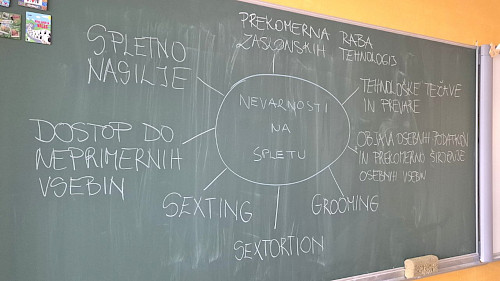 PREKOMERNA RABA
ZASLONSKIH TEHNOLOGIJ
SPLETNO
NASILJE
NEVARNOSTI
NA
SPLETU
TEHNOLOŠKE TEŽAVE
IN PREVARE
DOSTOP DO
NEPRIMERNIH
VSEBIN
OBJAVA OSEBNIH PODATKOV
IN PREKOMERNO ŠIRJENJE
OSEBNIH VSEBIN
SEXTING
SEXTORTION
GROOMING